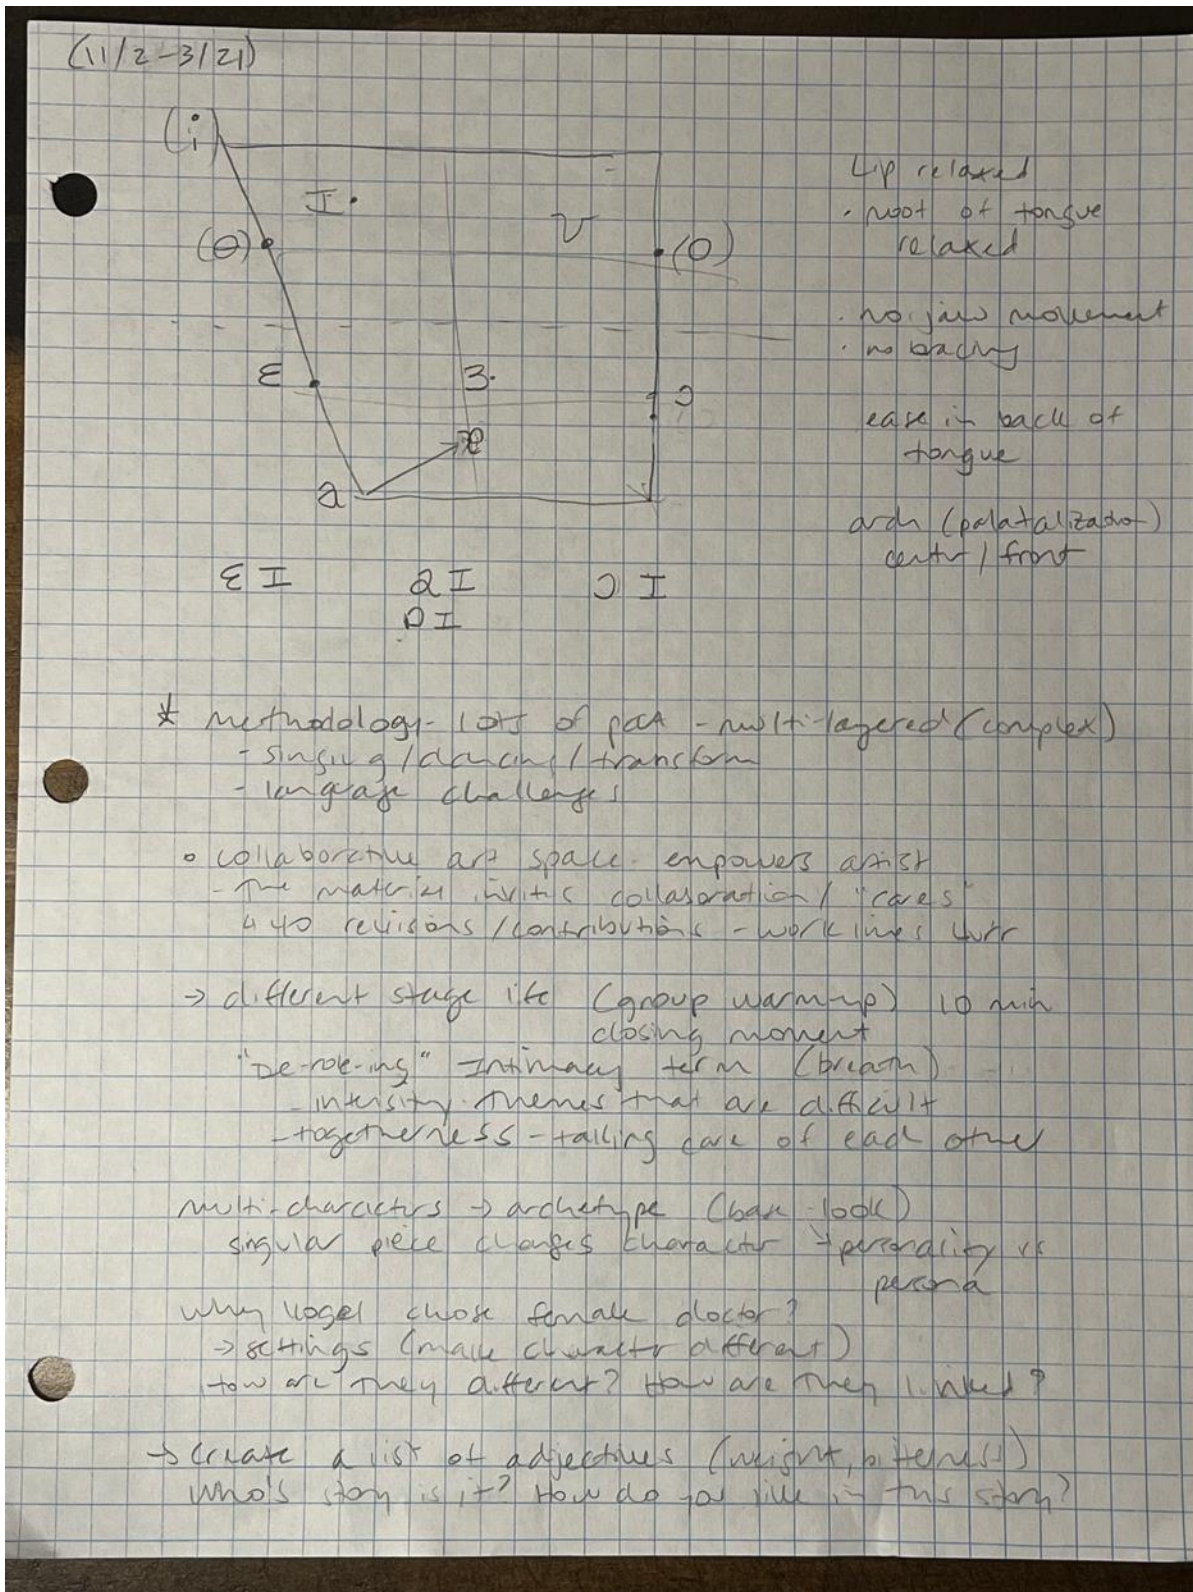 (11/2-3/21)
(i)
I.
(θ)
ʊ
(O)
ε
3.
ɔ
ɐ
a
Lip relaxed
· root of tongue
relaxed
· no jaw movement
· no backing
ease in back of
tongue
arch (palatalization)
center / front
ε I
a I
ɔ I
ɒ I
* methodology - lots of - multi-layered (complex)
- singing / dancing / transform
- language challenges
o collaborative art space - empowers artist
- The material invites collaboration / "cares"
440 revisions / contributions - work lines
→ different stage life (group warm-up) 10 min
closing moment
"De-role-ing" Intimacy term (breath)
- intensity themes that are difficult
- togetherness - taking care of each other
multi-characters → archetype (base look)
singular piece changes character → personality vs
persona
why Vogel chose female doctor?
→ settings (make character different)
How are they different? How are they linked?
→ create a list of adjectives (weight, biterness)
who's story is it? How do you live in this story?